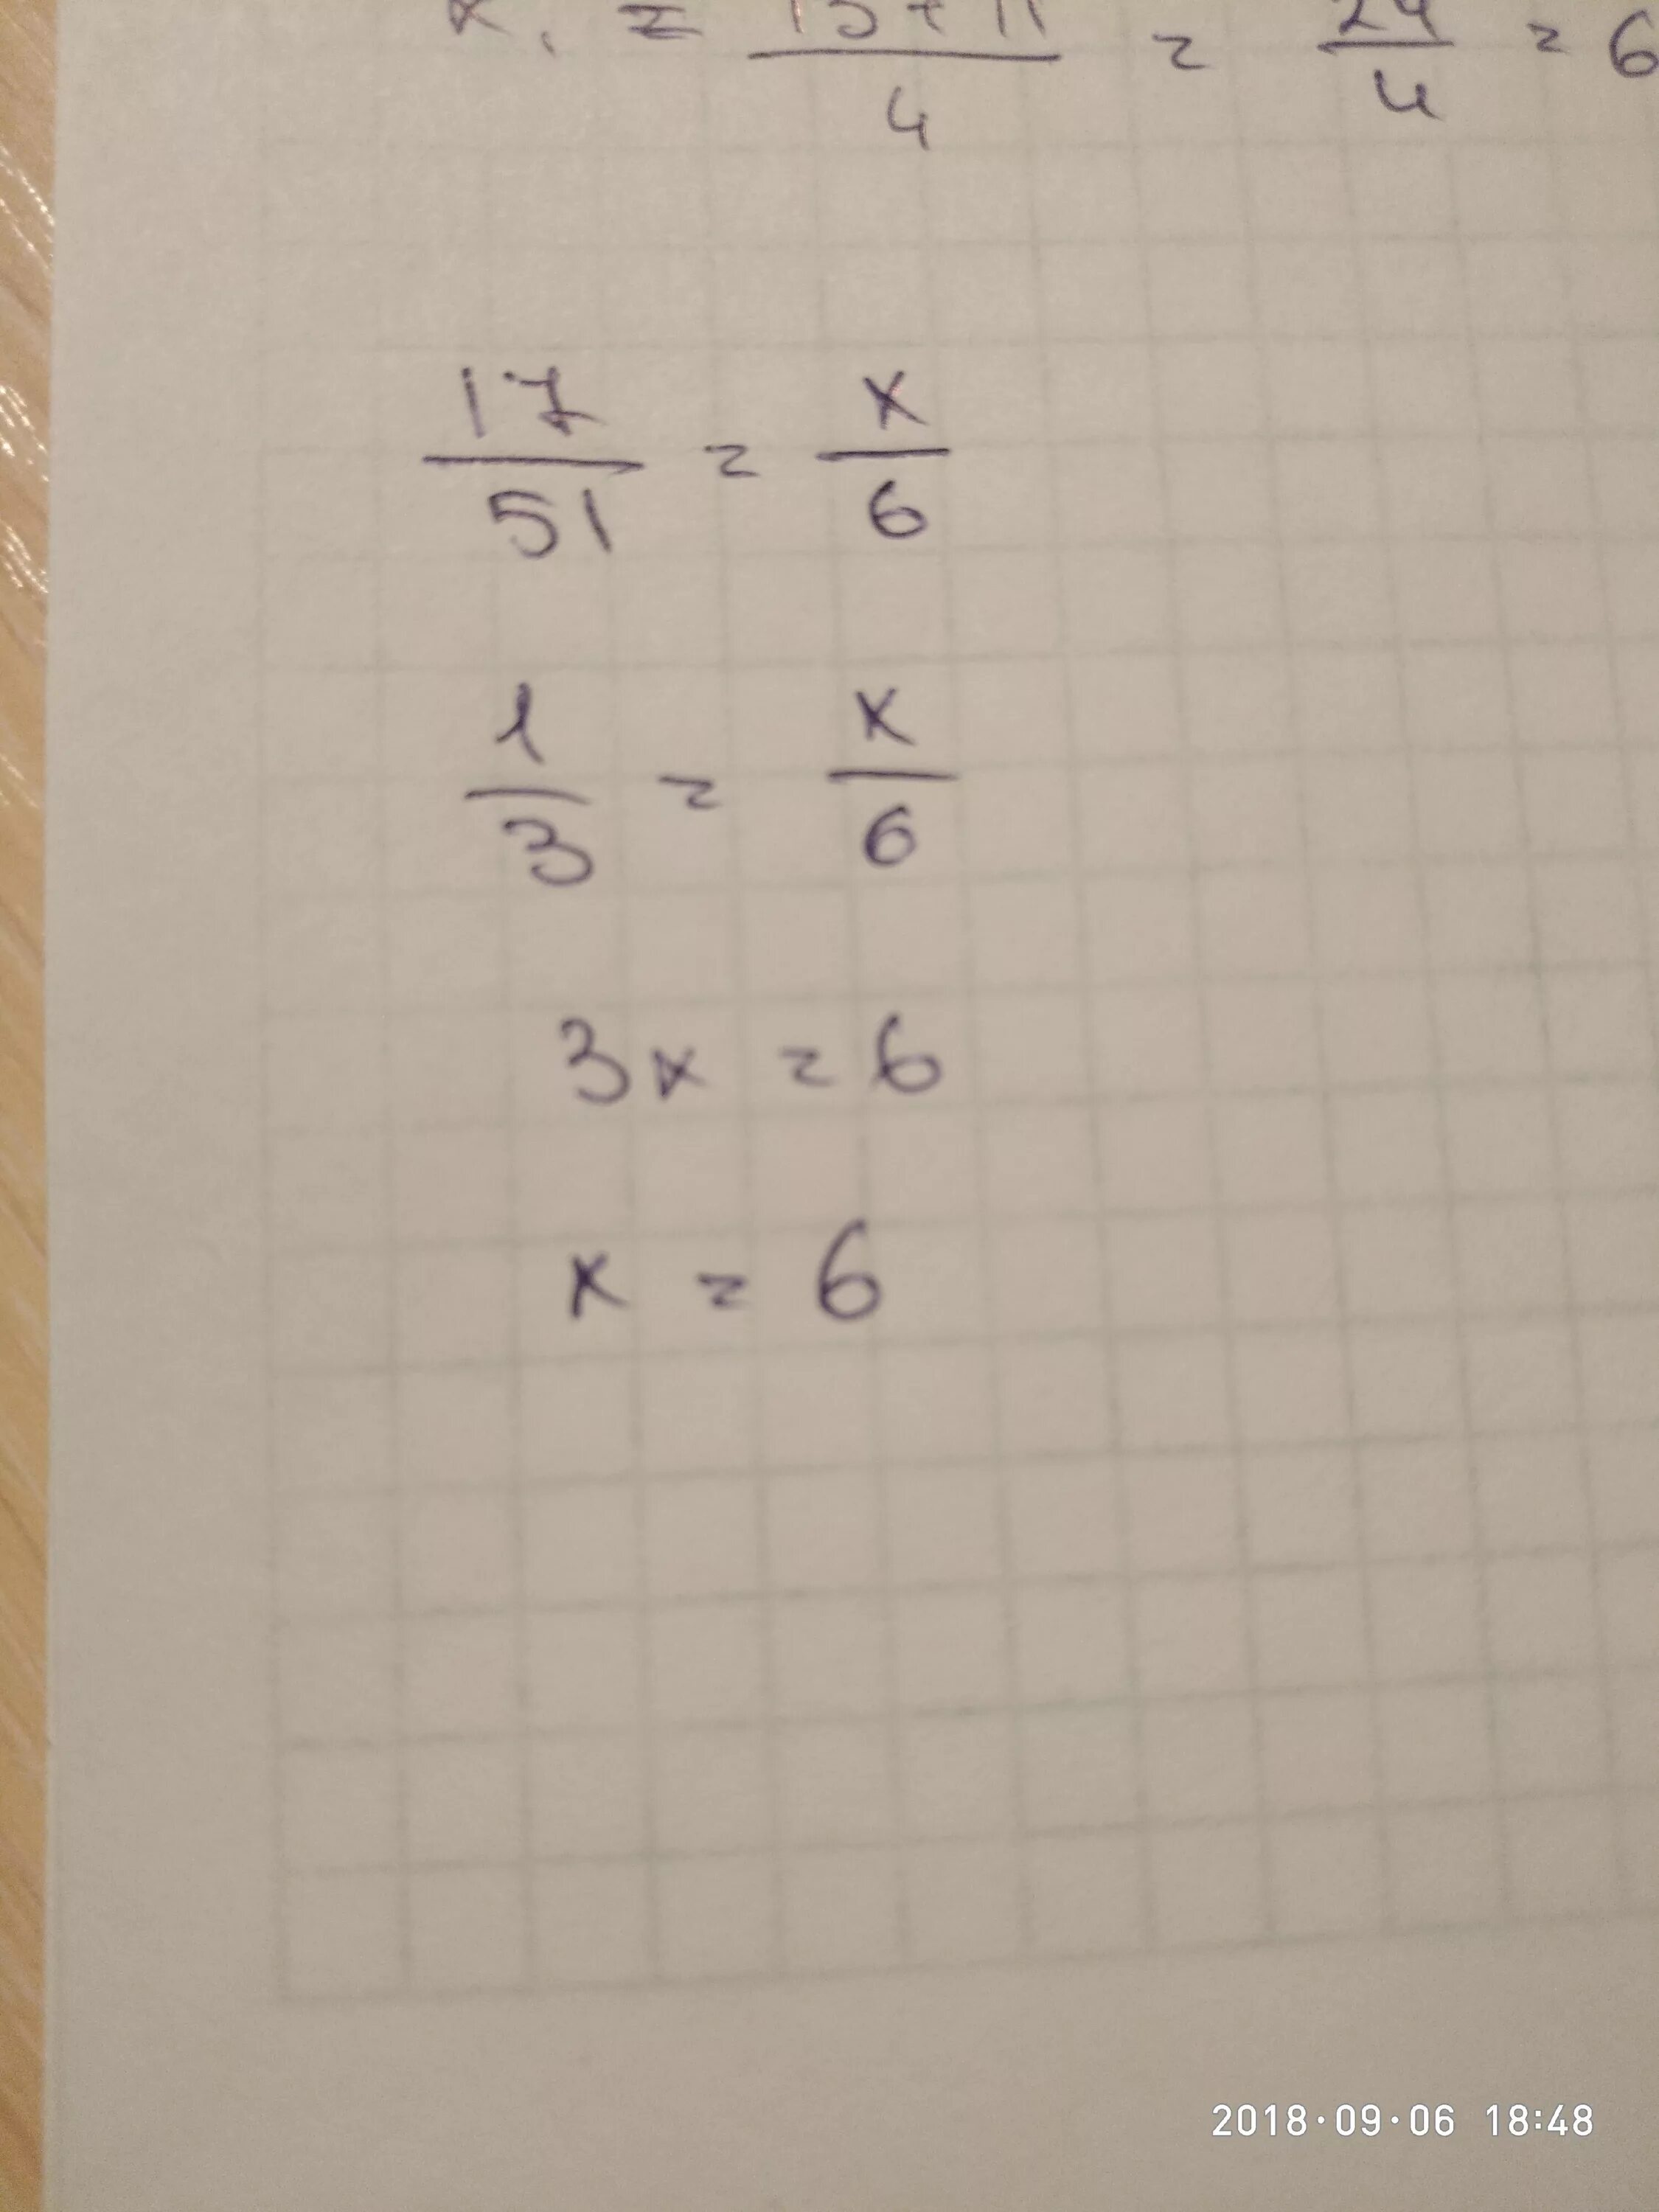 x₁ = 13+11/4 = 24/4 = 6
17/51 = x/6
1/3 = x/6
3x = 6
x = 6
2018·09·06 18:48